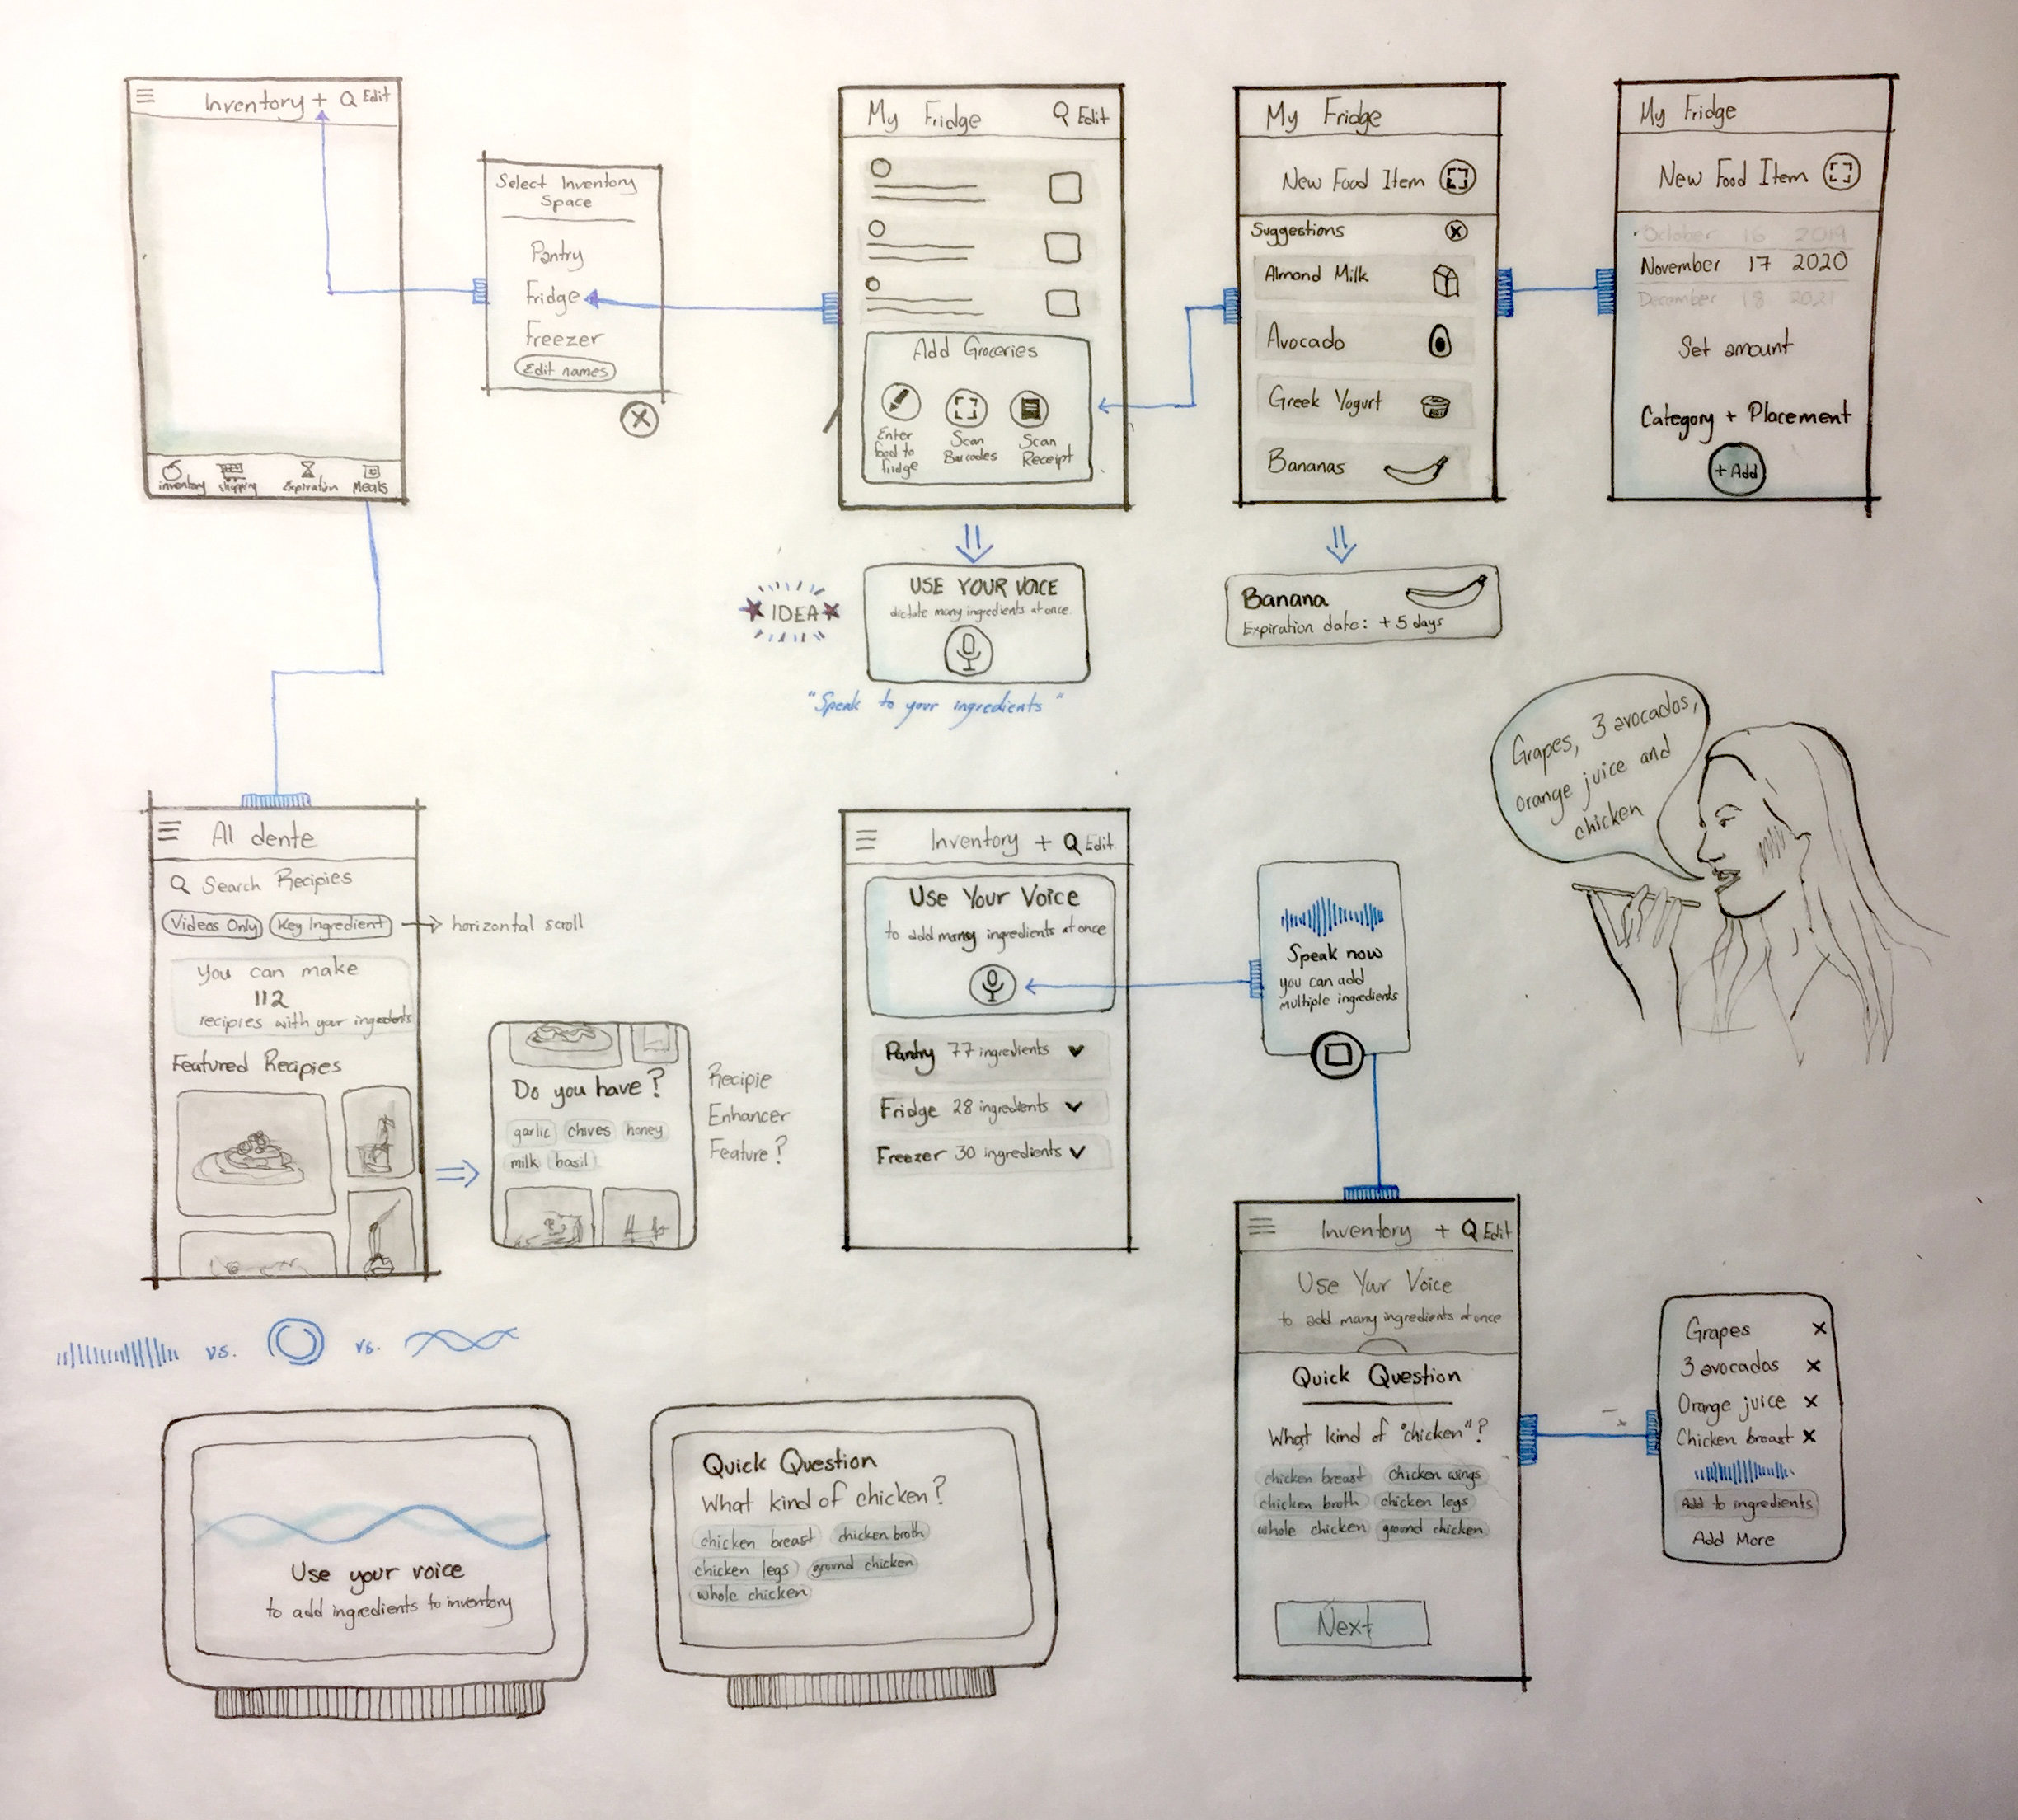 Inventory + Edit
inventory
shopping
Expiration
Meals
Select Inventory
Space
Pantry
Fridge
Freezer
Edit names
My Fridge Edit
Add Groceries
Enter
food to
fridge
Scan
Barcodes
Scan
Receipt
My Fridge
New Food Item
Suggestions
Almond Milk
Avocado
Greek Yogurt
Bananas
My Fridge
New Food Item
October 16 2019
November 17 2020
December 18 2021
Set amount
Category + Placement
+ Add
IDEA
USE YOUR VOICE
dictate many ingredients at once.
"Speak to your ingredients"
Banana
Expiration date: +5 days
Grapes, 3 avocados,
orange juice and
chicken
Al dente
Search Recipies
Videos Only Key Ingredient horizontal scroll
You can make
112
recipies with your ingredients
Featured Recipies
Do you have?
garlic chives honey
milk basil
Recipie
Enhancer
Feature?
Inventory + Edit
Use Your Voice
to add many ingredients at once
Pantry 77 ingredients
Fridge 28 ingredients
Freezer 30 ingredients
Speak now
you can add
multiple ingredients
Inventory + Edit
Use Your Voice
to add many ingredients at once
Quick Question
What kind of "chicken"?
chicken breast chicken wings
chicken broth chicken legs
whole chicken ground chicken
Next
Grapes x
3 avocados x
Orange juice x
Chicken breast x
Add to ingredients
Add More
vs. vs.
Use your voice
to add ingredients to inventory
Quick Question
What kind of chicken?
chicken breast chicken broth
chicken legs ground chicken
whole chicken